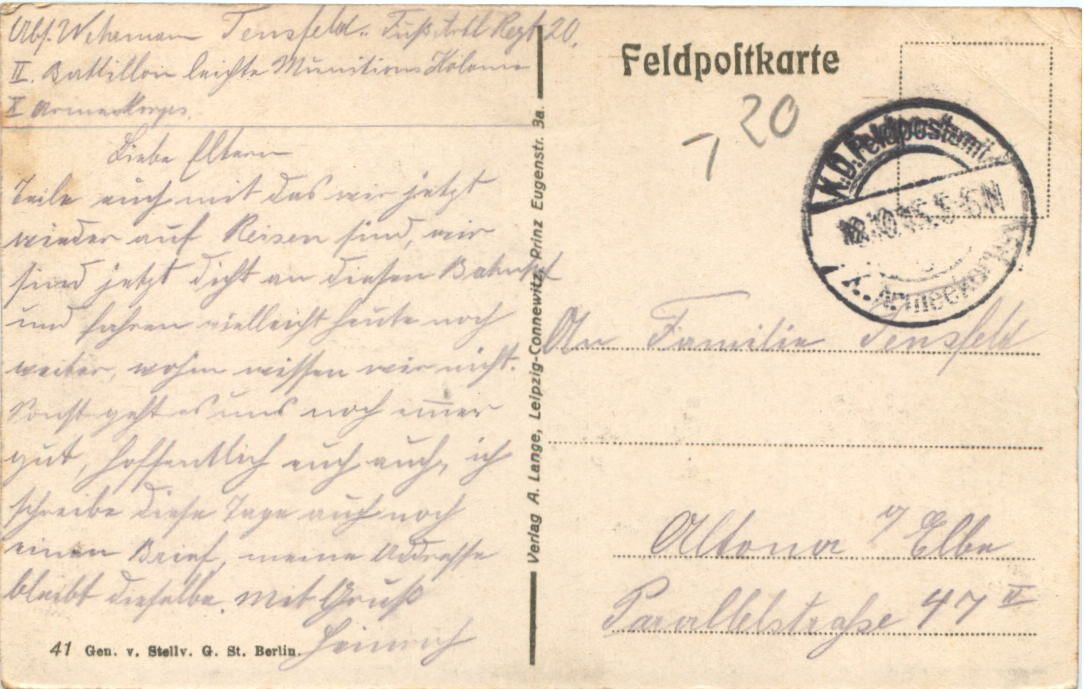 Abs. Wehrmann Tensfeld. Fuß Artl Regt 20.
II. Battillon leichte Munitions Kolonne
X Armeekorps.
Liebe Eltern
Teile euch mit das wir jetzt
wieder auf Reisen sind, wir
sind jetzt dicht an diesen Bahnhof
und fahren vielleicht heute noch
weiter, wohin wissen wir nicht.
Sonst geht es uns noch immer
gut, hoffentlich euch auch, ich
schreibe diese Tage auch noch
einen Brief, meine Addresse
bleibt dieselbe. Mit Gruß
Heinrich
41 Gen. v. Stellv. G. St. Berlin.
Verlag A. Lange, Leipzig-Connewitz, Prinz Eugenstr. 3a.
Feldpostkarte
20
K.D. Feldpostamt
10.15.5-6N
X. Armeekorps
An Familie Tensfeld
Altona a/ Elbe
Parallelstraße 47 II